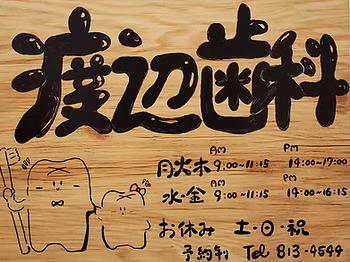 渡辺歯科
AM PM
月火木 9:00~11:15 14:00~17:00
AM PM
水・金 9:00~11:15 14:00~16:15
お休み 土・日・祝
予約制 Tel 813-4544